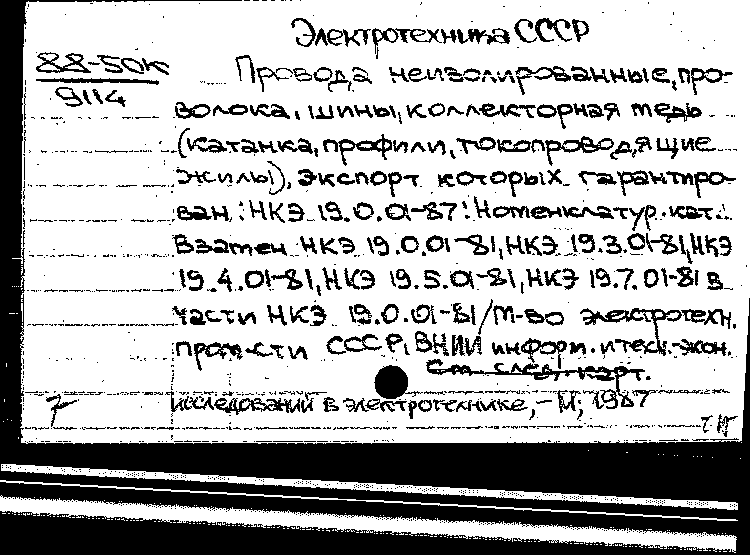 Электротехника СССР
88-50к
9114
Провода неизолированные, про-
волока, шины, коллекторная медь
(катанка, профили, токопроводящие
жилы), экспорт которых гарантиро-
ван : НКЭ 19.0.01-87 : Номенклатур. кат.
Взамен НКЭ 19.0.01-81, НКЭ 19.3.01-81, НКЭ
19.4.01-81, НКЭ 19.5.01-81, НКЭ 19.7.01-81 в
части НКЭ 19.0.01-81 / М-во электротехн.
пром-сти СССР, ВНИИ информ. и техн.-экон.
См. след. карт.
исследований в электротехнике, - М, 1987
7